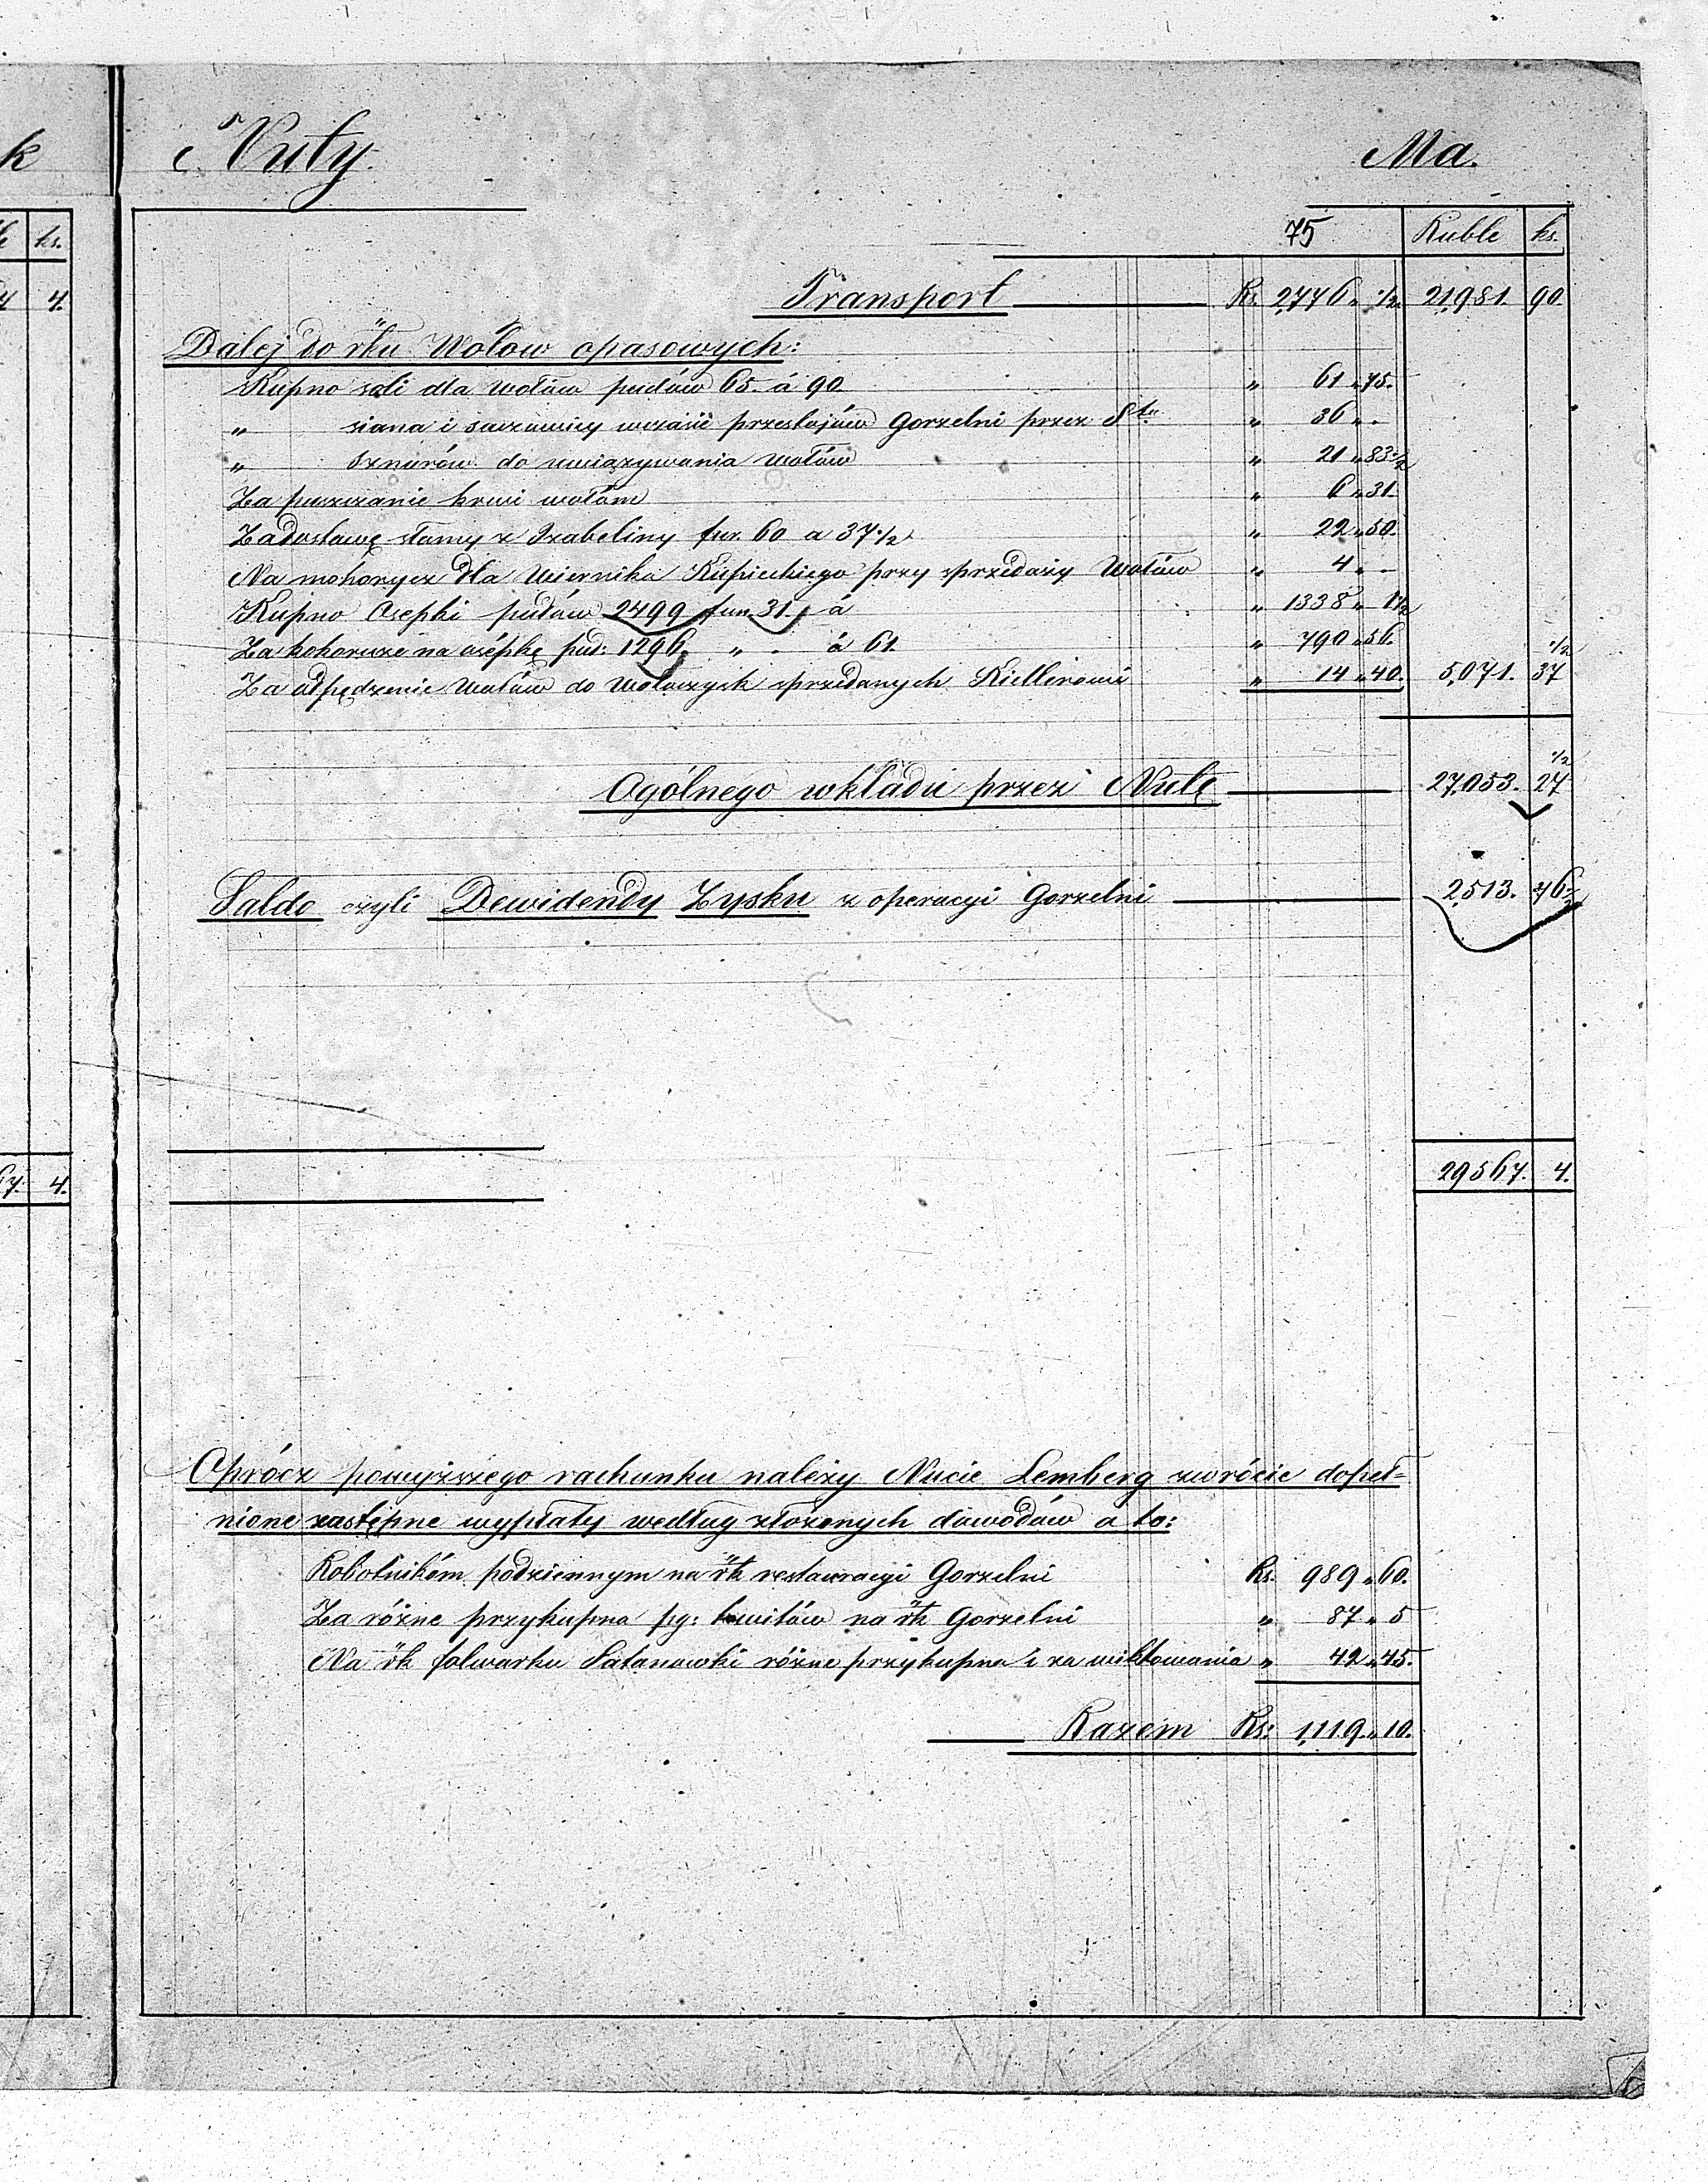 k Nuty. Ma.
ks. 75 Ruble ks.
4. Transport Rs. 2,776 „ ½ 21,981. 90.
Dalej do rku Wołow opasowych:
Kupno soli dla wołów pudów 65. á 90 „ 61 „ 75.
„ siana i saczewicy wczasie przestojów Gorzelni przez „ 36 „ -
„ Sznurów do uwiązywania wołów „ 21 „ 83½
Za puszczanie krwi wołom „ 6 „ 31.
Za dostawę słomy z Izabeliny fur. 60 a 37½ „ 22 „ 50.
Na mohorycz dla Miernika Kupieckiego przy sprzedaży Wołów „ 4 „ -
Kupno Osepki pudów 2499 fun. 31. á „ 1338 „ 1½
Za kohoruze na osépkę pud: 1296 „ . á 61. „ 790 „ 56. ½
Za odpędzenie Wołów do Wołoczysk sprzedanych Kiellerowi „ 14 „ 40. 5,071. 37
½
Ogólnego wkładu przez Nutę 27,053. 27
Saldo czyli Dewidendy Zysku z operacyi Gorzelni 2,513. 76½
29567. 4.
67. 4.
Oprócz powyższego rachunku należy Nucie Lemberg zwrócic dopeł=
nione zastępne wypłaty według złożonych dowodów a to:
Robotnikóm podziennym na rk restawracyi Gorzelni Rs. 989 „ 60.
Za różne przykupna pg: kwitów na rk Gorzelni „ 87 „ 5
Na rk folwarku Satanowki różne przykupna i za wiktowania „ 42 „ 45.
Razem Rs: 1,119. „ 10.